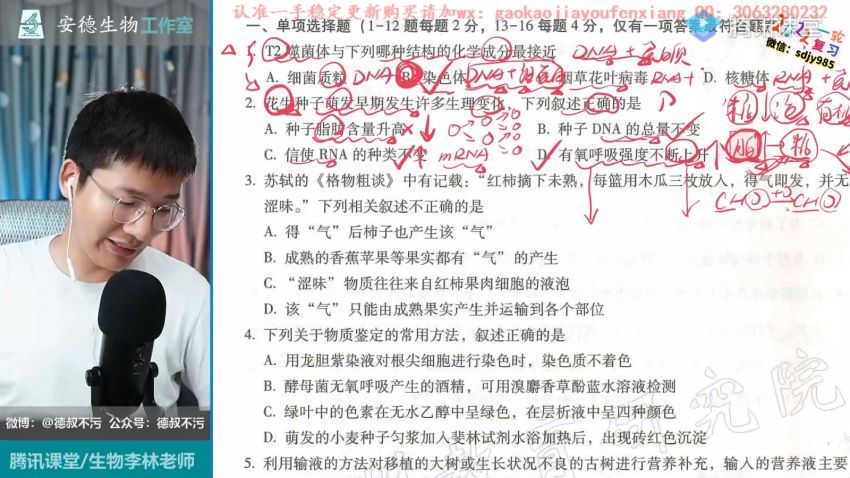 认准一手稳定更新购买请加wx: gaokaojiayoufenxiang QQ: 3063280232
安德生物工作室
一、单项选择题（1-12题每题2分，13-16每题4分，仅有一项答案最符合题
2022一轮复习
微信：sdjy985
1. T2噬菌体与下列哪种结构的化学成分最接近 DNA+蛋白质
A. 细菌质粒 DNA B. 染色体 DNA+蛋白质 C. 烟草花叶病毒 RNA+ D. 核糖体 RNA+
2. 花生种子萌发早期发生许多生理变化，下列叙述正确的是 D
A. 种子脂肪含量升高 B. 种子DNA的总量不变
C. 信使RNA的种类不变 mRNA D. 有氧呼吸强度不断上升
3. 苏轼的《格物粗谈》中有记载：“红柿摘下未熟，每篮用木瓜三枚放入，得气即发，并无
涩味。”下列相关叙述不正确的是
A. 得“气”后柿子也产生该“气”
B. 成熟的香蕉苹果等果实都有“气”的产生
C. “涩味”物质往往来自红柿果肉细胞的液泡
D. 该“气”只能由成熟果实产生并运输到各个部位
4. 下列关于物质鉴定的常用方法，叙述正确的是
A. 用龙胆紫染液对根尖细胞进行染色时，染色质不着色
B. 酵母菌无氧呼吸产生的酒精，可用溴麝香草酚蓝水溶液检测
C. 绿叶中的色素在无水乙醇中呈绿色，在层析液中呈四种颜色
D. 萌发的小麦种子匀浆加入斐林试剂水浴加热后，出现砖红色沉淀
5. 利用输液的方法对移植的大树或生长状况不良的古树进行营养补充，输入的营养液主要
研究院
微博：@德叔不污 公众号：德叔不污
腾讯课堂/生物李林老师